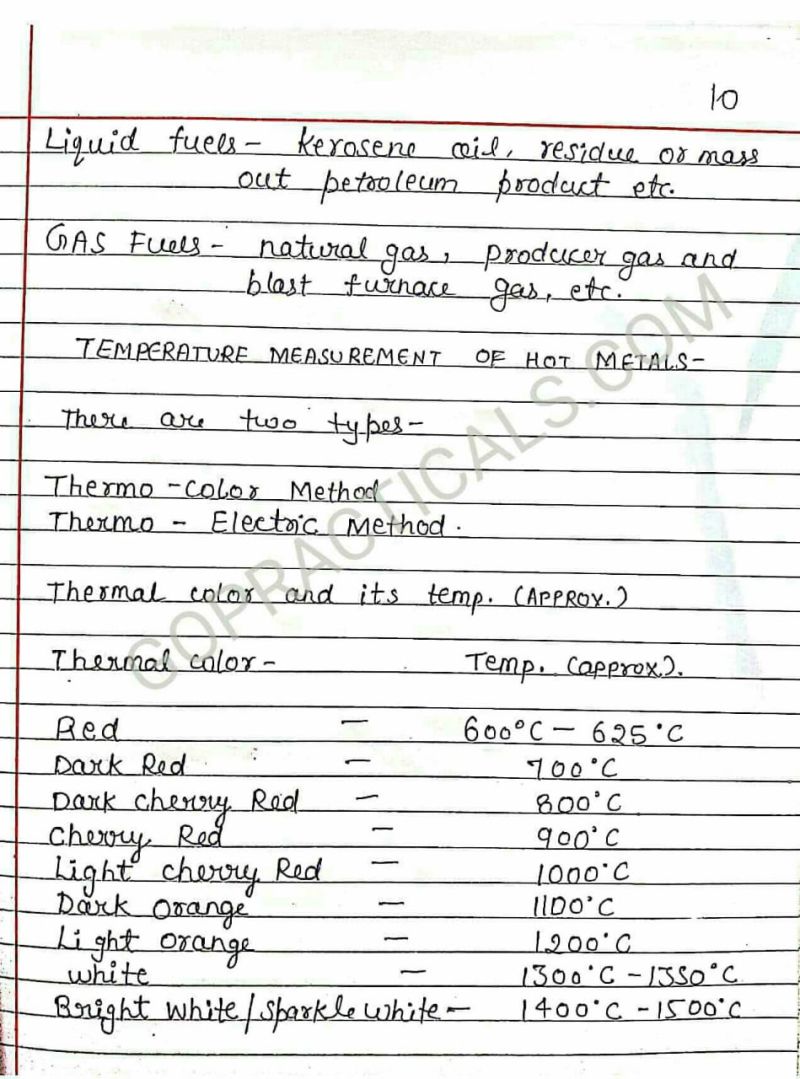 10
Liquid fuels - kerosene oil, residue or mass
out petroleum product etc.
GAS Fuels - natural gas, producer gas and
blast furnace gas, etc.
TEMPERATURE MEASUREMENT OF HOT METALS-
There are two types-
Thermo-color Method
Thermo - Electric Method.
Thermal color and its temp. (APPROX.)
Thermal color - Temp. (approx).
Red - 600°C - 625°C
Dark Red - 700°C
Dark cherry Red - 800°C
Cherry Red - 900°C
Light cherry Red - 1000°C
Dark orange - 1100°C
Light orange - 1200°C
white - 1300°C - 1350°C
Bright white/sparkle white - 1400°C - 1500°C
GOPRACTICALS.COM